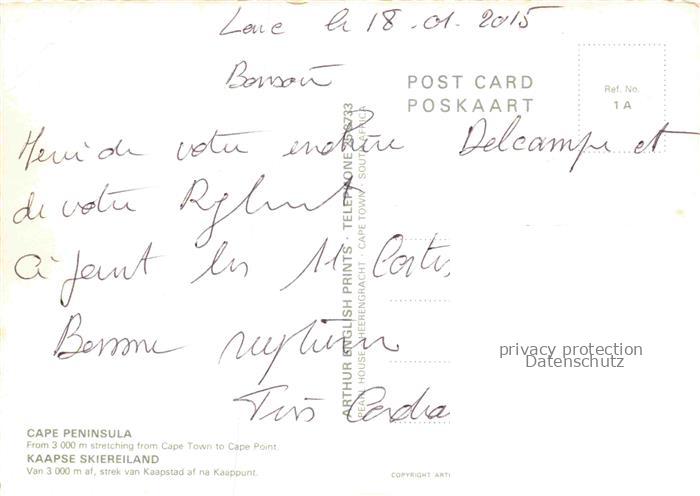 le 18-01-2015
Bonsoir
POST CARD
POSKAART
Ref. No.
1 A
Merci de votre enchère Delcampe et
de votre Rglmt
Ci joint les 11 Cartes
Bonne reception
Très Cordia
ARTHUR ENGLISH PRINTS · TELEPHONE
PEARL HOUSE HEERENGRACHT · CAPE TOWN · SOUTH AFRICA
privacy protection
Datenschutz
CAPE PENINSULA
From 3 000 m stretching from Cape Town to Cape Point.
KAAPSE SKIEREILAND
Van 3 000 m af, strek van Kaapstad af na Kaappunt.
COPYRIGHT ART